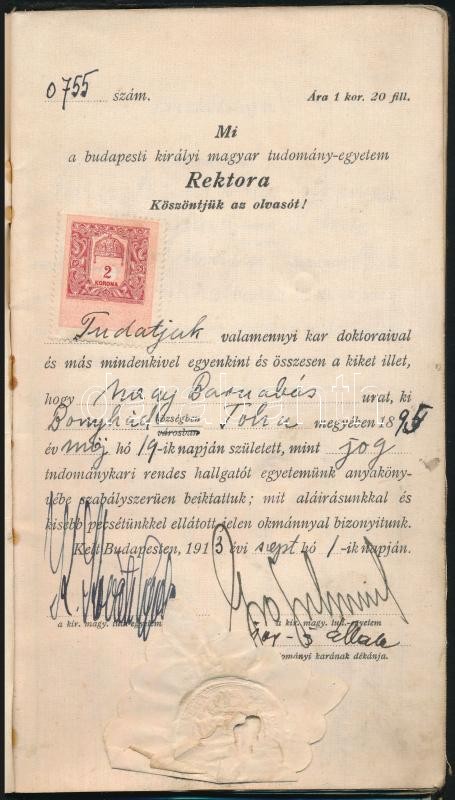 0755 szám. Ára 1 kor. 20 fill.
Mi
a budapesti királyi magyar tudomány-egyetem
Rektora
Köszöntjük az olvasót!
2
KORONA
Tudatjuk valamennyi kar doktoraival
és más mindenkivel egyenkint és összesen a kiket illet,
hogy Nagy Barnabás urat, ki
Bonyhád községben Tolna megyében 1895
városban
év máj hó 19-ik napján született, mint jog
tudománykari rendes hallgatót egyetemünk anyaköny-
vébe szabályszerüen beiktattuk; mit aláirásunkkal és
kisebb pecsétünkkel ellátott jelen okmánnyal bizonyitunk.
Kelt Budapesten, 1913 évi sept hó 1-ik napján.
a kir. magy. tud.-egyetem a kir. magy. tud.-egyetem
dományi karának dékánja.